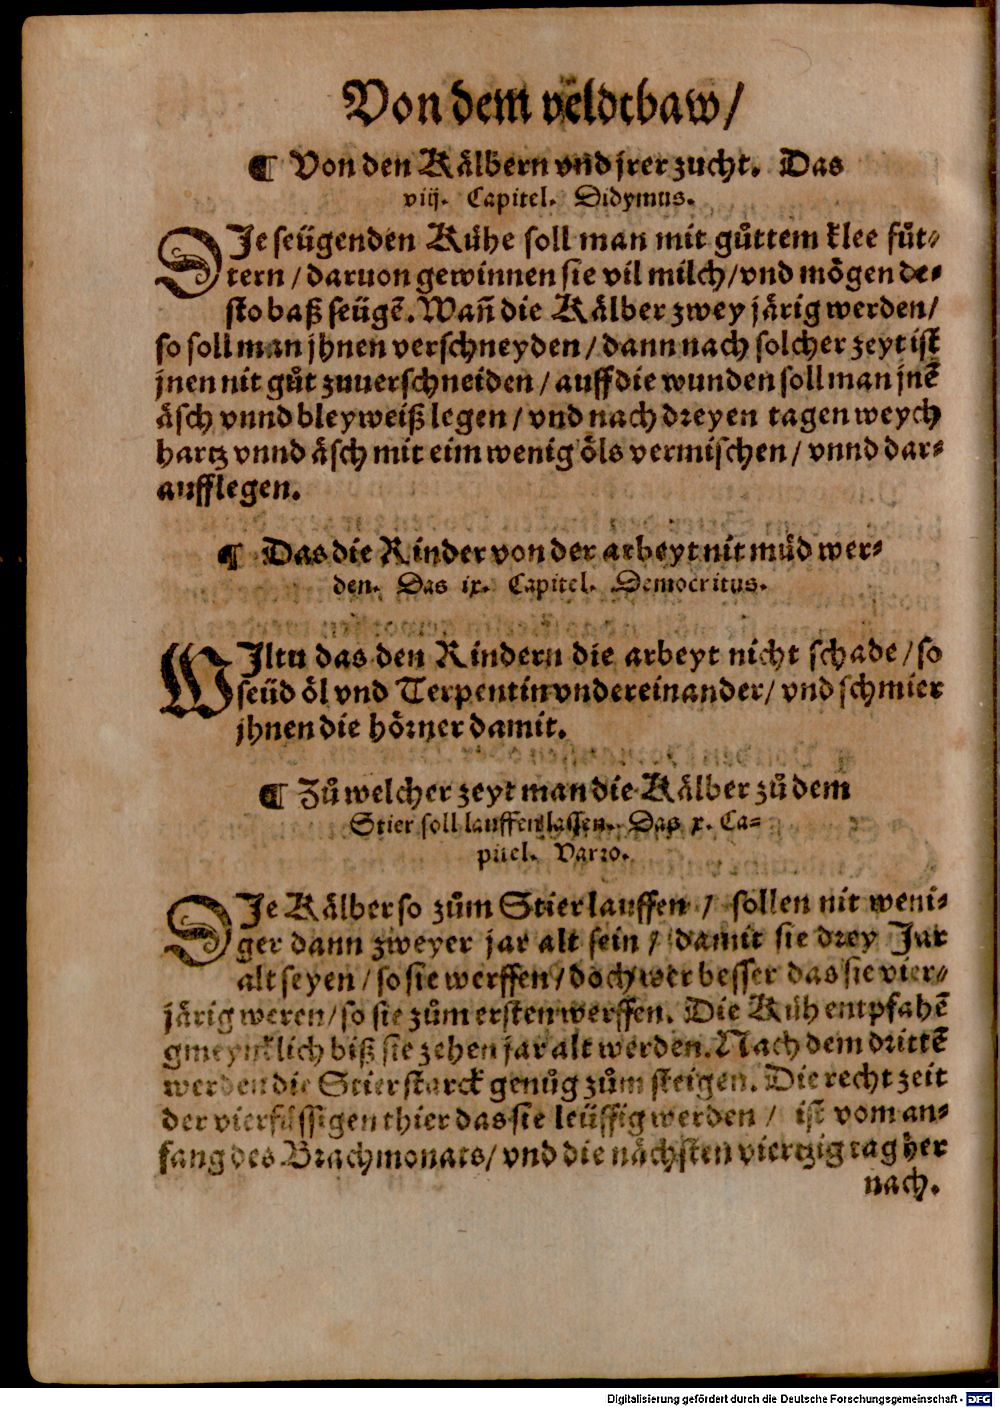 Von dem veldtbaw/
¶ Von den Kälbern vnd jrer zucht. Das
viij. Capitel. Didymus.
DJe seügenden Kühe soll man mit gůttem klee fůt⸗
tern / daruon gewinnen sie vil milch/vnd mögen de⸗
sto baß seügẽ. Wañ die Kälber zwey järig werden/
so soll man jhnen verschneyden / dann nach solcher zeyt ist
jnen nit gůt zuuerschneiden / auff die wunden soll man jnẽ
äsch vnnd bleyweiß legen / vnd nach dreyen tagen weych
hartz vnnd äsch mit eim wenig öls vermischen / vnnd dar⸗
aufflegen.
¶ Das die Rinder von der arbeyt nit müd wer⸗
den. Das ix. Capitel. Democritus.
WJltu das den Rindern die arbeyt nicht schade / so
seüd öl vnd Terpentin vndereinander/ vnd schmier
jhnen die hörner damit.
¶ Zů welcher zeyt man die Kälber zů dem
Stier soll lauffen lassen. Das x. Ca⸗
pitel. Varro.
DJe Kälber so zům Stier lauffen / sollen nit weni⸗
ger dann zweyer jar alt sein / damit sie drey Jar
alt seyen / so sie werffen / doch wer besser das sie vier⸗
järig weren/ so sie zům ersten werffen. Die Küh empfahẽ
gmeynklich biß sie zehen jar alt werden. Nach dem drittẽ
werden die Stier starck genůg zům steigen. Die recht zeit
der vierfüssigen thier das sie leüffig werden / ist vom an⸗
fang des Brachmonats/ vnd die nächsten viertzig tag her
nach.
Digitalisierung gefördert durch die Deutsche Forschungsgemeinschaft - DFG